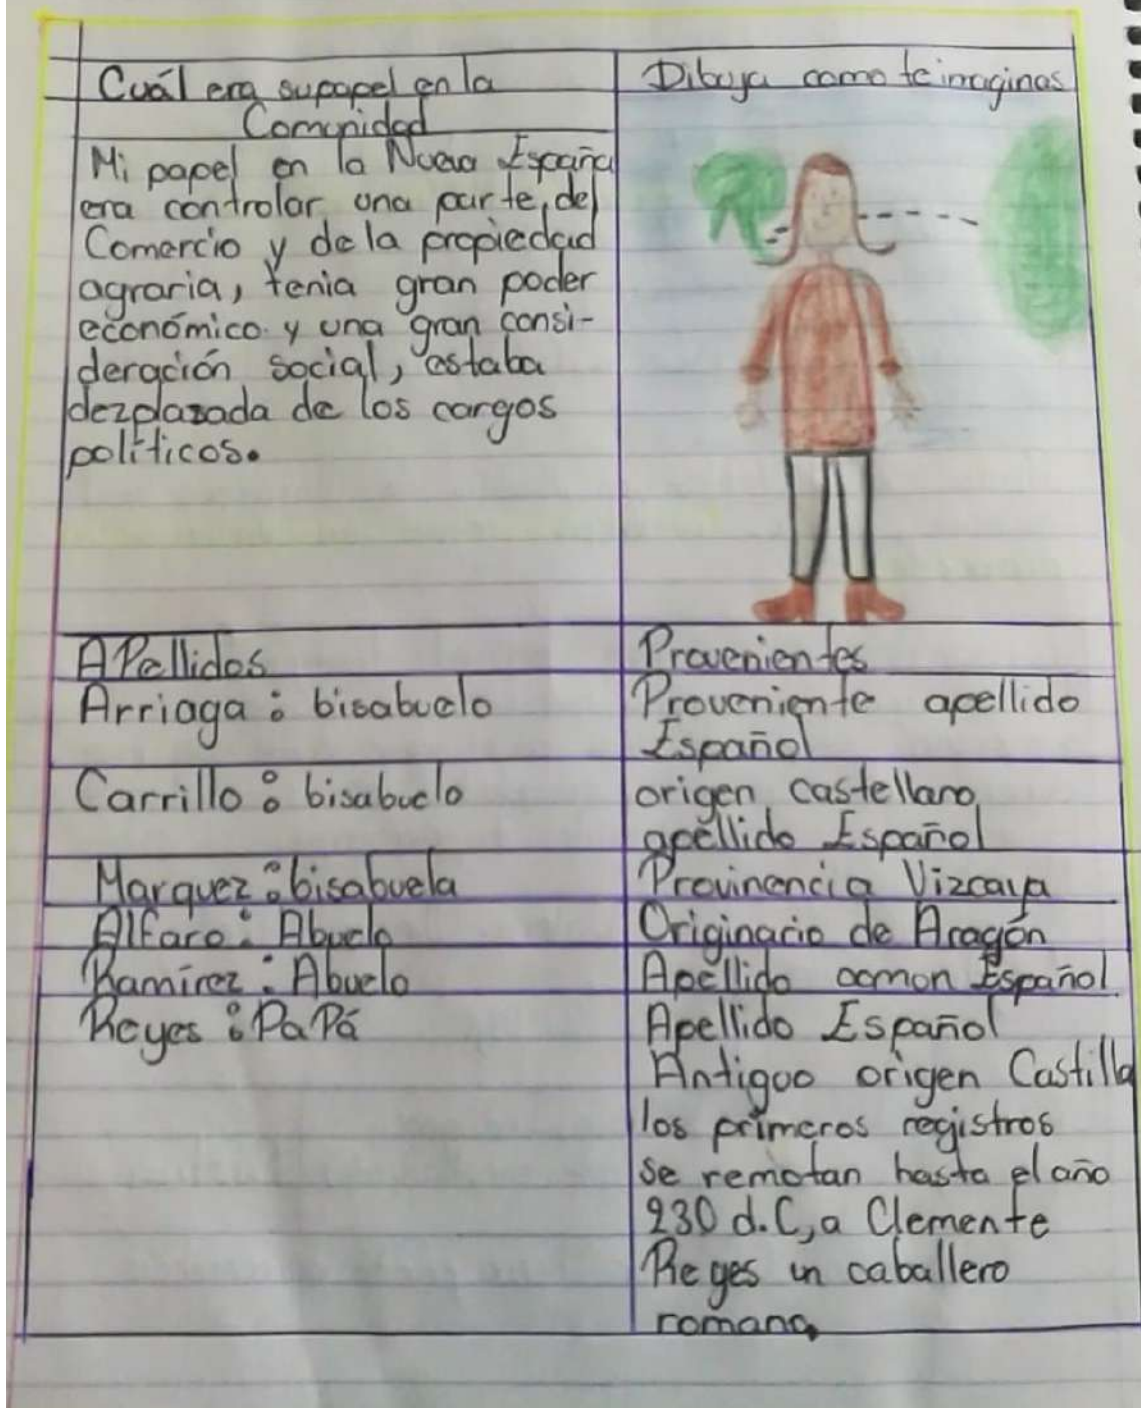 Cuál era su papel en la
Comunidad
Dibuja como te imaginas
Mi papel en la Nueva España
era controlar una parte, del
Comercio y de la propiedad
agraria, tenia gran poder
económico y una gran consi-
deración social, estaba
dezplazada de los cargos
políticos.
APellidos
Provenientes
Arriaga : bisabuelo
Proveniente apellido
Español
Carrillo : bisabuelo
origen castellano
apellido Español
Marquez : bisabuela
Provinencia Vizcaya
Alfaro : Abuelo
Originario de Aragón
Ramírez : Abuelo
Apellido comon Español
Reyes : PaPá
Apellido Español
Antiguo origen Castilla
los primeros registros
se remotan hasta el año
230 d.C, a Clemente
Reyes un caballero
romano.